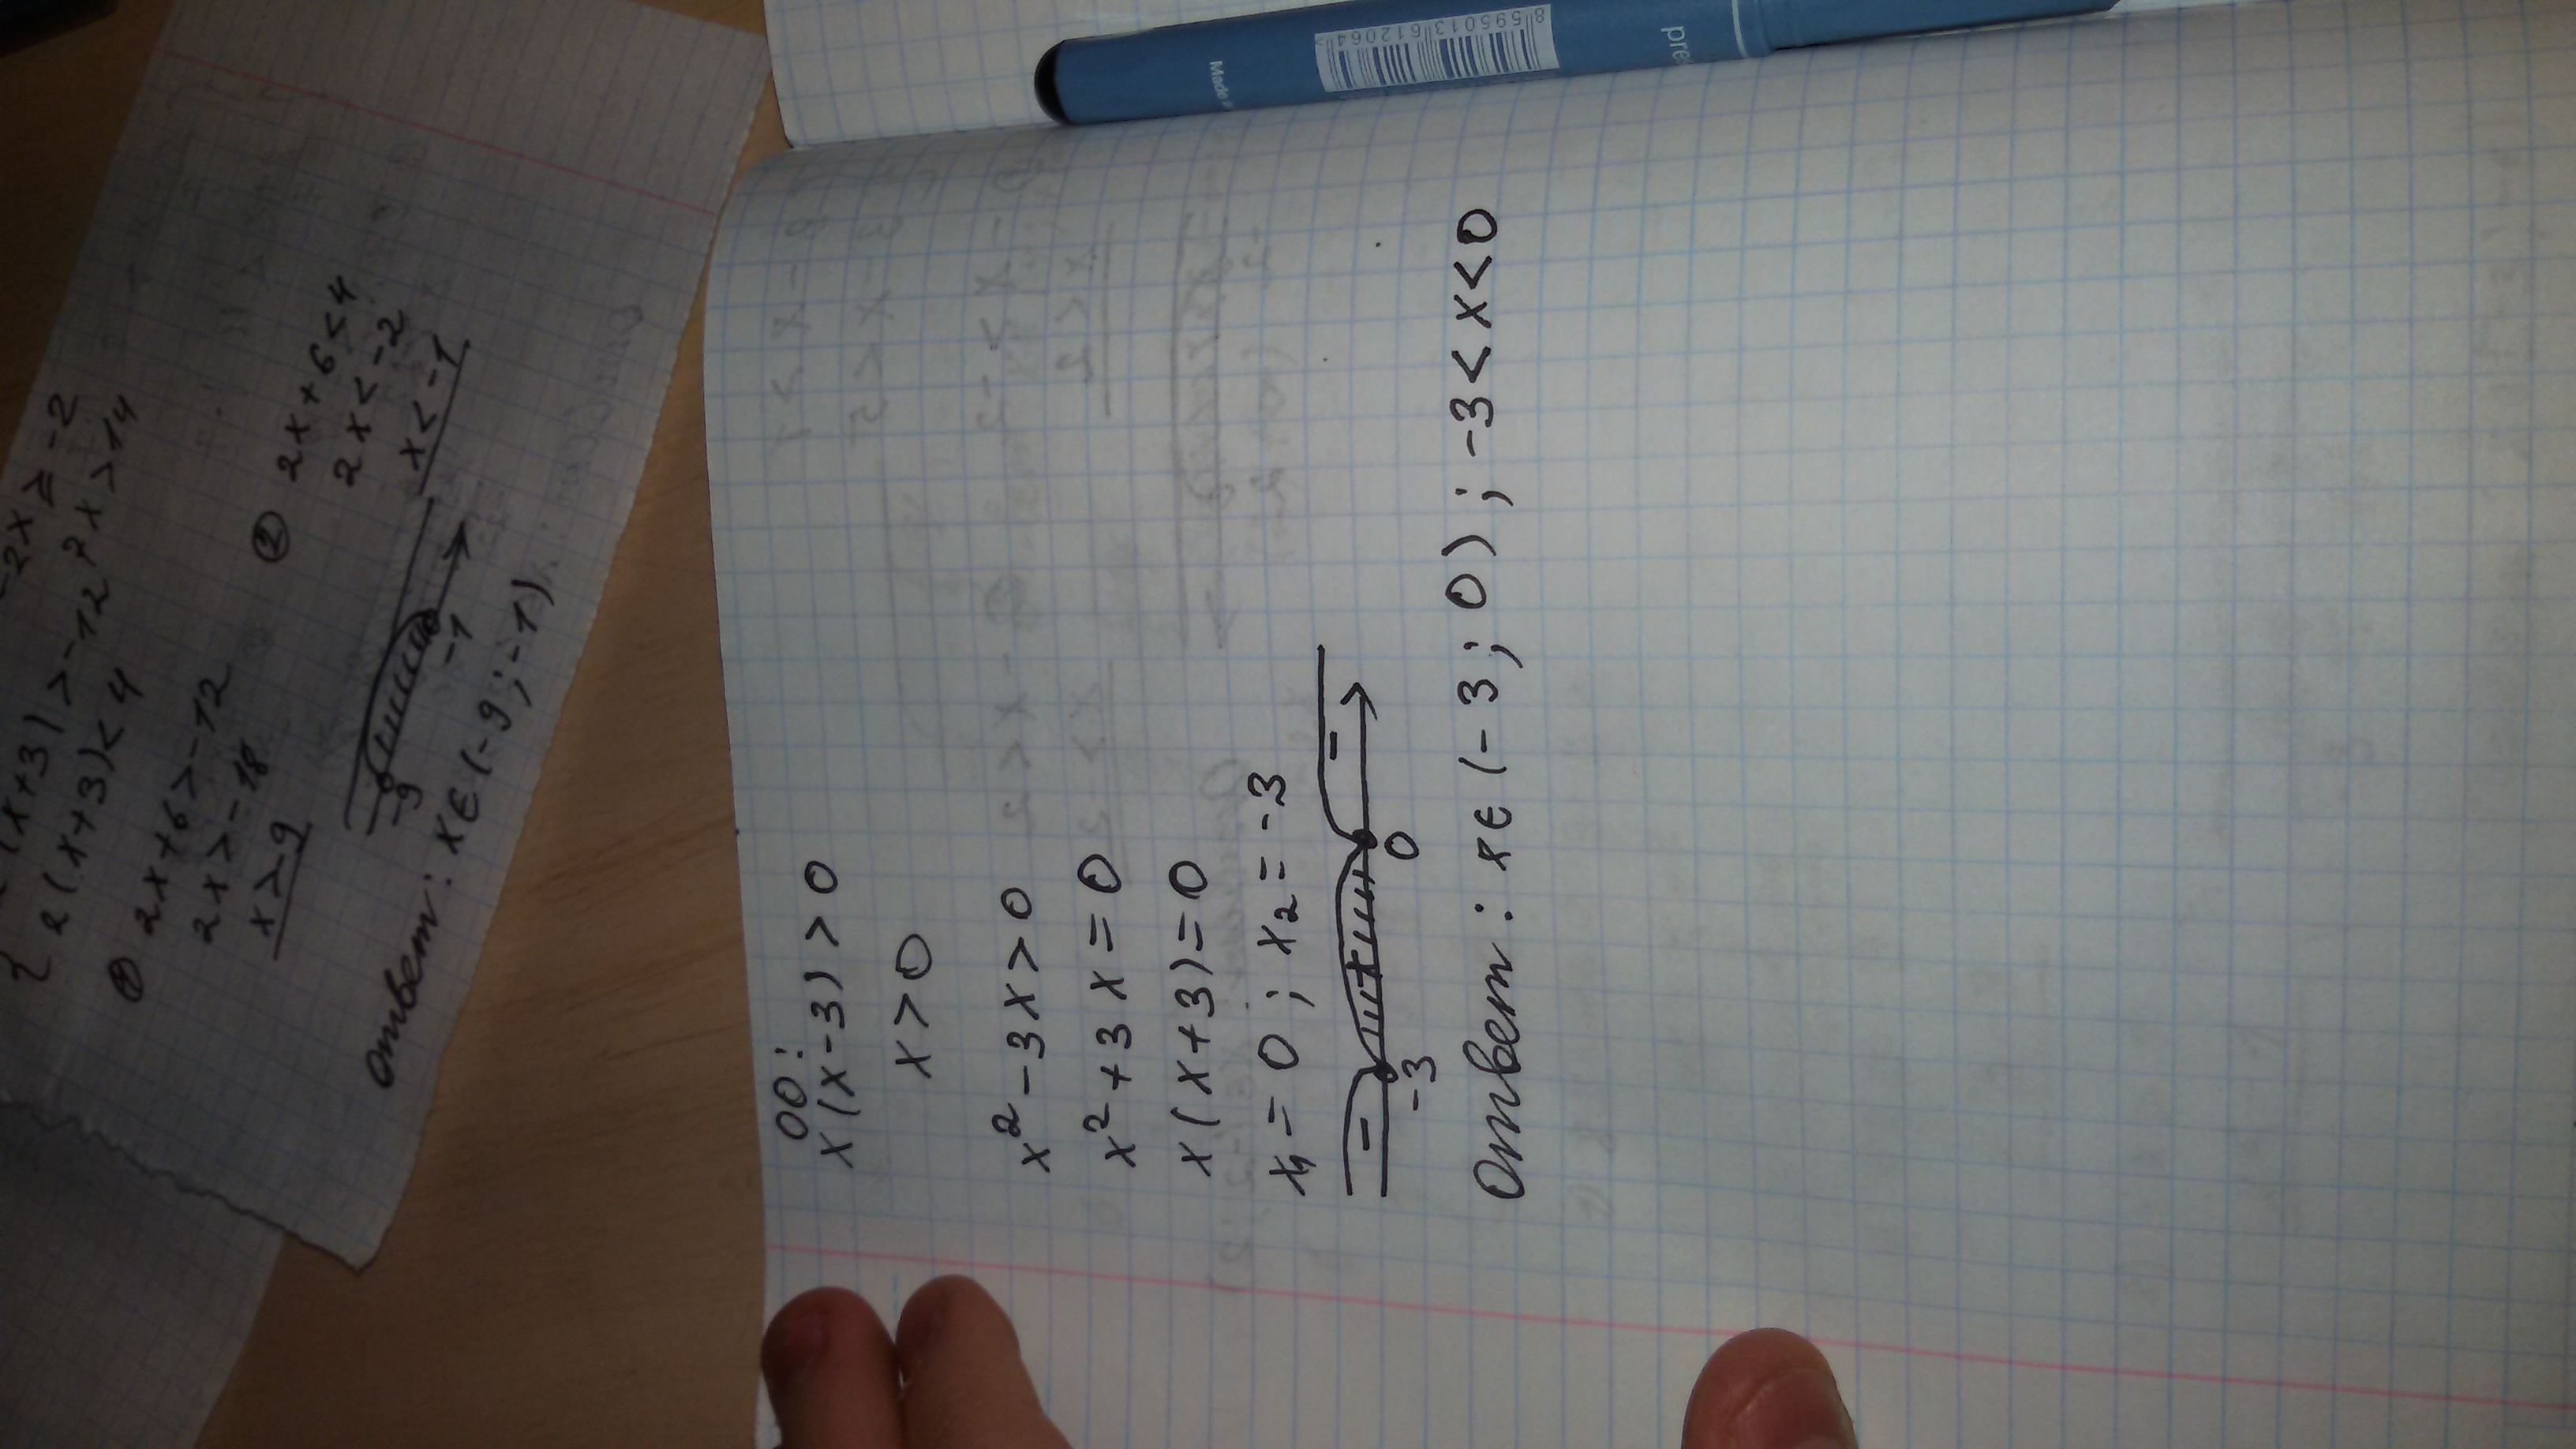 -2x ≥ -2
(x+3) > -12 2x > 14
{ 2(x+3) < 4
① 2x+6 > -12
2x > -18
x > -9
② 2x+6 < 4
2x < -2
x < -1
-9 -1
Ответ: x∈(-9; -1)
ОО:
x(x-3) > 0
x > 0
x² - 3x > 0
x² + 3x = 0
x(x+3) = 0
x₁ = 0; x₂ = -3
- + -
-3 0
Ответ: x∈(-3; 0); -3 < x < 0
8595013612064
Made
pre